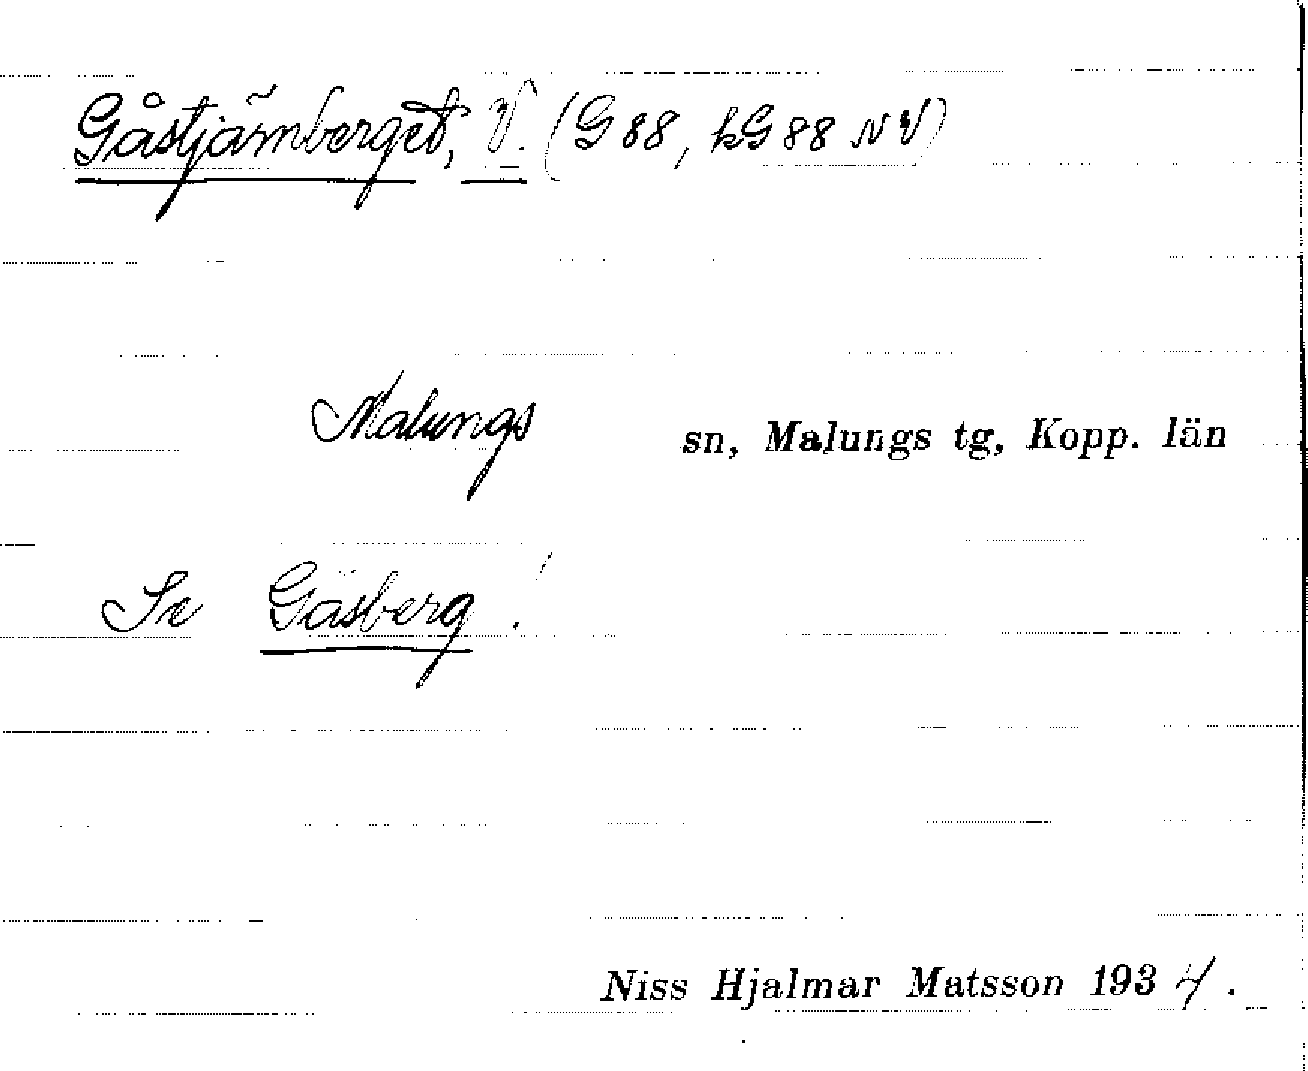 Gåstjärnberget, V. (G 88, kG 88 NV)
Malungs sn, Malungs tg, Kopp. län
Se Gåsberg!
Niss Hjalmar Matsson 1934.